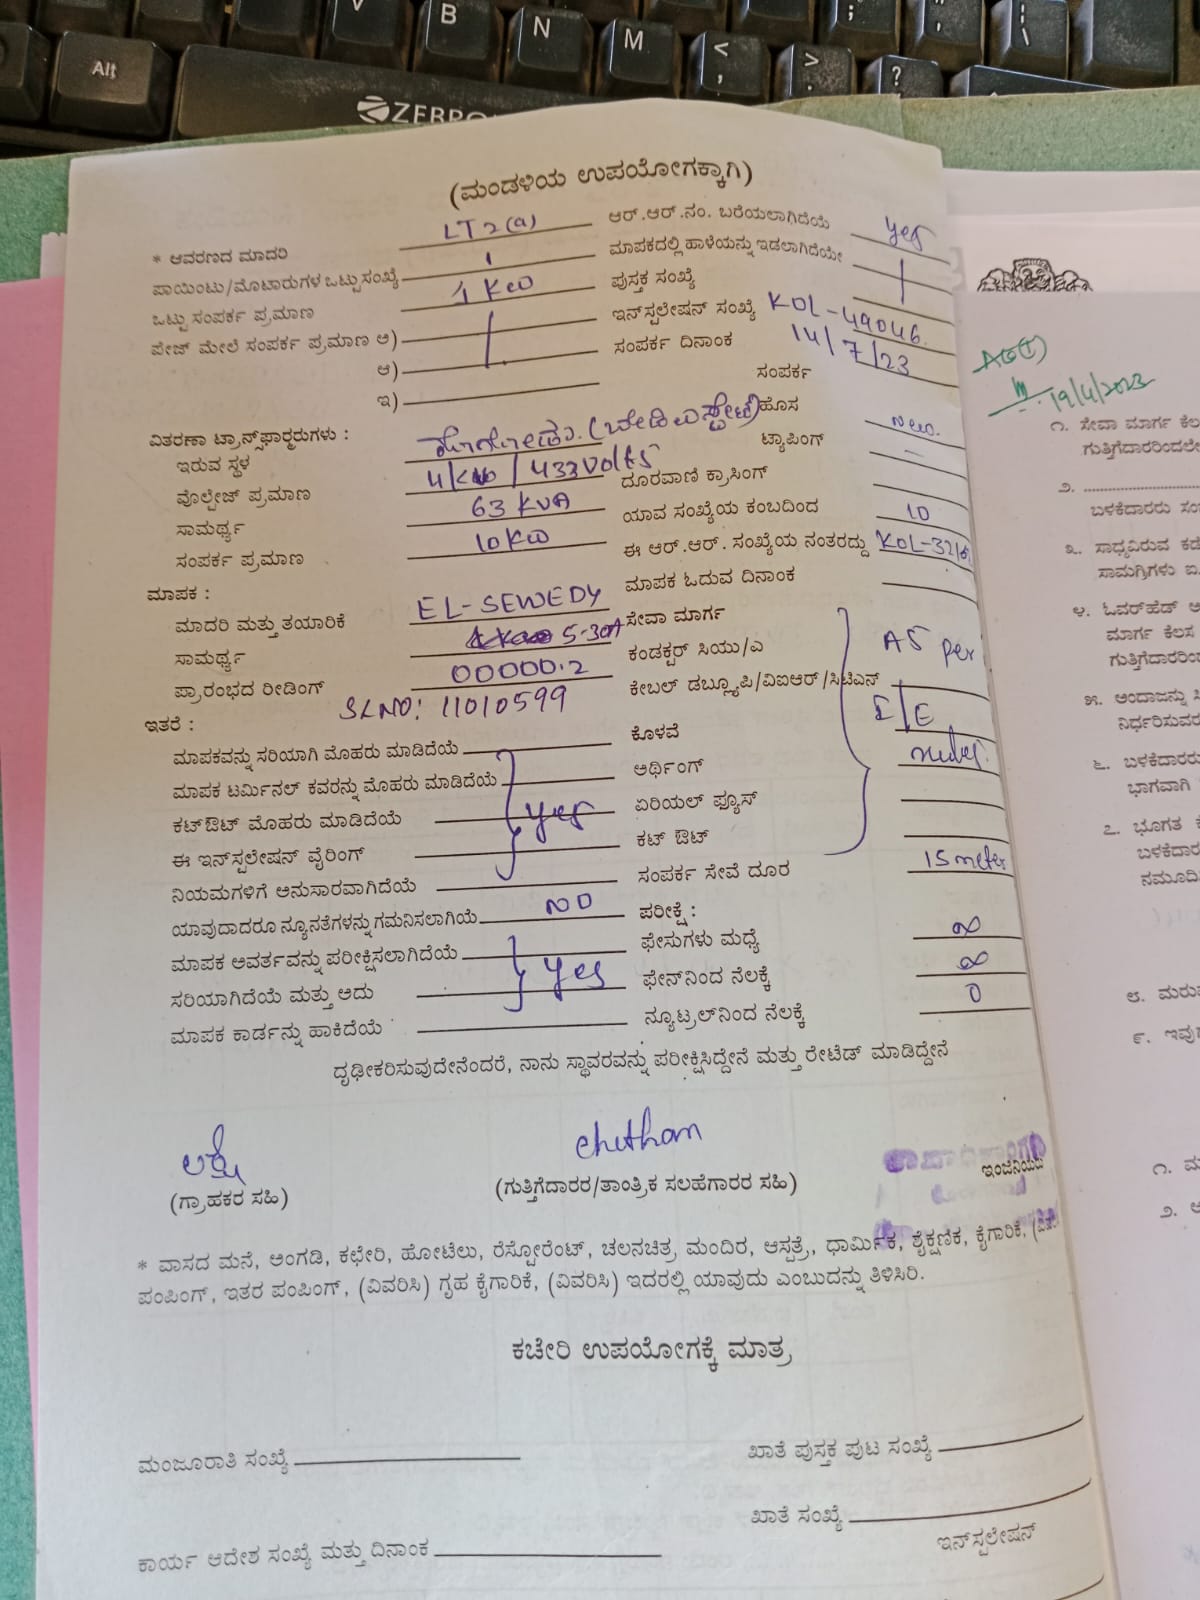 V B N M < , > . ? / : ; " ' | \
Alt
ZEBRO
(ಮಂಡಳಿಯ ಉಪಯೋಗಕ್ಕಾಗಿ)
* ಆವರಣದ ಮಾದರಿ LT 2(a) ಆರ್.ಆರ್.ನಂ. ಬರೆಯಲಾಗಿದೆಯೆ yes
ಪಾಯಿಂಟು/ಮೊಟಾರುಗಳ ಒಟ್ಟು ಸಂಖ್ಯೆ 1 ಮಾಪಕದಲ್ಲಿ ಹಾಳೆಯನ್ನು ಇಡಲಾಗಿದೆಯೇ
ಒಟ್ಟು ಸಂಪರ್ಕ ಪ್ರಮಾಣ 1 KW ಪುಸ್ತಕ ಸಂಖ್ಯೆ
ಪೇಜ್ ಮೇಲೆ ಸಂಪರ್ಕ ಪ್ರಮಾಣ ಅ) ಇನ್‌ಸ್ಟಲೇಷನ್ ಸಂಖ್ಯೆ KOL-49046
ಆ) ಸಂಪರ್ಕ ದಿನಾಂಕ 14/7/23
ಇ) ಸಂಪರ್ಕ
ವಿತರಣಾ ಟ್ರಾನ್ಸ್‌ಫಾರ್‍ಮರುಗಳು : ಹೊಸ New.
ಇರುವ ಸ್ಥಳ ಟ್ಯಾಪಿಂಗ್ –
ವೊಲ್ಟೇಜ್ ಪ್ರಮಾಣ / 433 Volts ದೂರವಾಣಿ ಕ್ರಾಸಿಂಗ್
ಸಾಮರ್ಥ್ಯ 63 KVA ಯಾವ ಸಂಖ್ಯೆಯ ಕಂಬದಿಂದ 10
ಸಂಪರ್ಕ ಪ್ರಮಾಣ 10 KW ಈ ಆರ್.ಆರ್. ಸಂಖ್ಯೆಯ ನಂತರದ್ದು
ಮಾಪಕ : ಮಾಪಕ ಓದುವ ದಿನಾಂಕ
ಮಾದರಿ ಮತ್ತು ತಯಾರಿಕೆ EL-SEWEDY ಸೇವಾ ಮಾರ್ಗ
ಸಾಮರ್ಥ್ಯ 5-30A ಕಂಡಕ್ಟರ್ ಸಿಯು/ಎ As per
ಪ್ರಾರಂಭದ ರೀಡಿಂಗ್ 00000.2 ಕೇಬಲ್ ಡಬ್ಲ್ಯೂಪಿ/ವಿಐಆರ್/ಸಿಟಿಎಸ್ I/E
SL NO: 11010599
ಇತರೆ :
ಮಾಪಕವನ್ನು ಸರಿಯಾಗಿ ಮೊಹರು ಮಾಡಿದೆಯೆ ಕೊಳವೆ rules.
ಮಾಪಕ ಟರ್ಮಿನಲ್ ಕವರನ್ನು ಮೊಹರು ಮಾಡಿದೆಯೆ ಅರ್ಥಿಂಗ್
ಕಟ್‌ಔಟ್ ಮೊಹರು ಮಾಡಿದೆಯೆ yes ಏರಿಯಲ್ ಫ್ಯೂಸ್
ಈ ಇನ್‌ಸ್ಟಲೇಷನ್ ವೈರಿಂಗ್ ಕಟ್ ಔಟ್
ನಿಯಮಗಳಿಗೆ ಅನುಸಾರವಾಗಿದೆಯೆ ಸಂಪರ್ಕ ಸೇವೆ ದೂರ 15 meter
ಯಾವುದಾದರೂ ನ್ಯೂನತೆಗಳನ್ನು ಗಮನಿಸಲಾಗಿಯೆ NO ಪರೀಕ್ಷೆ :
ಮಾಪಕ ಅವರ್ತವನ್ನು ಪರೀಕ್ಷಿಸಲಾಗಿದೆಯೆ ಫೇಸುಗಳು ಮಧ್ಯೆ ∞
ಸರಿಯಾಗಿದೆಯೆ ಮತ್ತು ಅದು yes ಫೇಸ್‌ನಿಂದ ನೆಲಕ್ಕೆ ∞
ಮಾಪಕ ಕಾರ್ಡನ್ನು ಹಾಕಿದೆಯೆ ನ್ಯೂಟ್ರಲ್‌ನಿಂದ ನೆಲಕ್ಕೆ 0
ದೃಢೀಕರಿಸುವುದೇನೆಂದರೆ, ನಾನು ಸ್ಥಾವರವನ್ನು ಪರೀಕ್ಷಿಸಿದ್ದೇನೆ ಮತ್ತು ರೇಟೆಡ್ ಮಾಡಿದ್ದೇನೆ
chethan
(ಗ್ರಾಹಕರ ಸಹಿ) (ಗುತ್ತಿಗೆದಾರರ/ತಾಂತ್ರಿಕ ಸಲಹೆಗಾರರ ಸಹಿ)
* ವಾಸದ ಮನೆ, ಅಂಗಡಿ, ಕಛೇರಿ, ಹೋಟೆಲು, ರೆಸ್ಟೋರೆಂಟ್, ಚಲನಚಿತ್ರ ಮಂದಿರ, ಆಸ್ಪತ್ರೆ, ಧಾರ್ಮಿಕ, ಶೈಕ್ಷಣಿಕ, ಕೈಗಾರಿಕೆ,
ಪಂಪಿಂಗ್, ಇತರ ಪಂಪಿಂಗ್, (ವಿವರಿಸಿ) ಗೃಹ ಕೈಗಾರಿಕೆ, (ವಿವರಿಸಿ) ಇದರಲ್ಲಿ ಯಾವುದು ಎಂಬುದನ್ನು ತಿಳಿಸಿರಿ.
ಕಚೇರಿ ಉಪಯೋಗಕ್ಕೆ ಮಾತ್ರ
ಮಂಜೂರಾತಿ ಸಂಖ್ಯೆ ಖಾತೆ ಪುಸ್ತಕ ಪುಟ ಸಂಖ್ಯೆ
ಖಾತೆ ಸಂಖ್ಯೆ
ಕಾರ್ಯ ಆದೇಶ ಸಂಖ್ಯೆ ಮತ್ತು ದಿನಾಂಕ ಇನ್‌ಸ್ಟಲೇಷನ್
19/4/2023
೧. ಸೇವಾ ಮಾರ್ಗ
೨.
ಬಳಕೆದಾರರು
೩. ಸಾಧ್ಯವಿರುವ
ಸಾಮಗ್ರಿಗಳು
೪. ಓವರ್‌ಹೆಡ್
ಮಾರ್ಗ ಕೆಲಸ
೫. ಅಂದಾಜನ್ನು
೬. ಬಳಕೆದಾರರು
ಭಾಗವಾಗಿ
೭. ಭೂಗತ
೮.
೯.
೧.
೨.